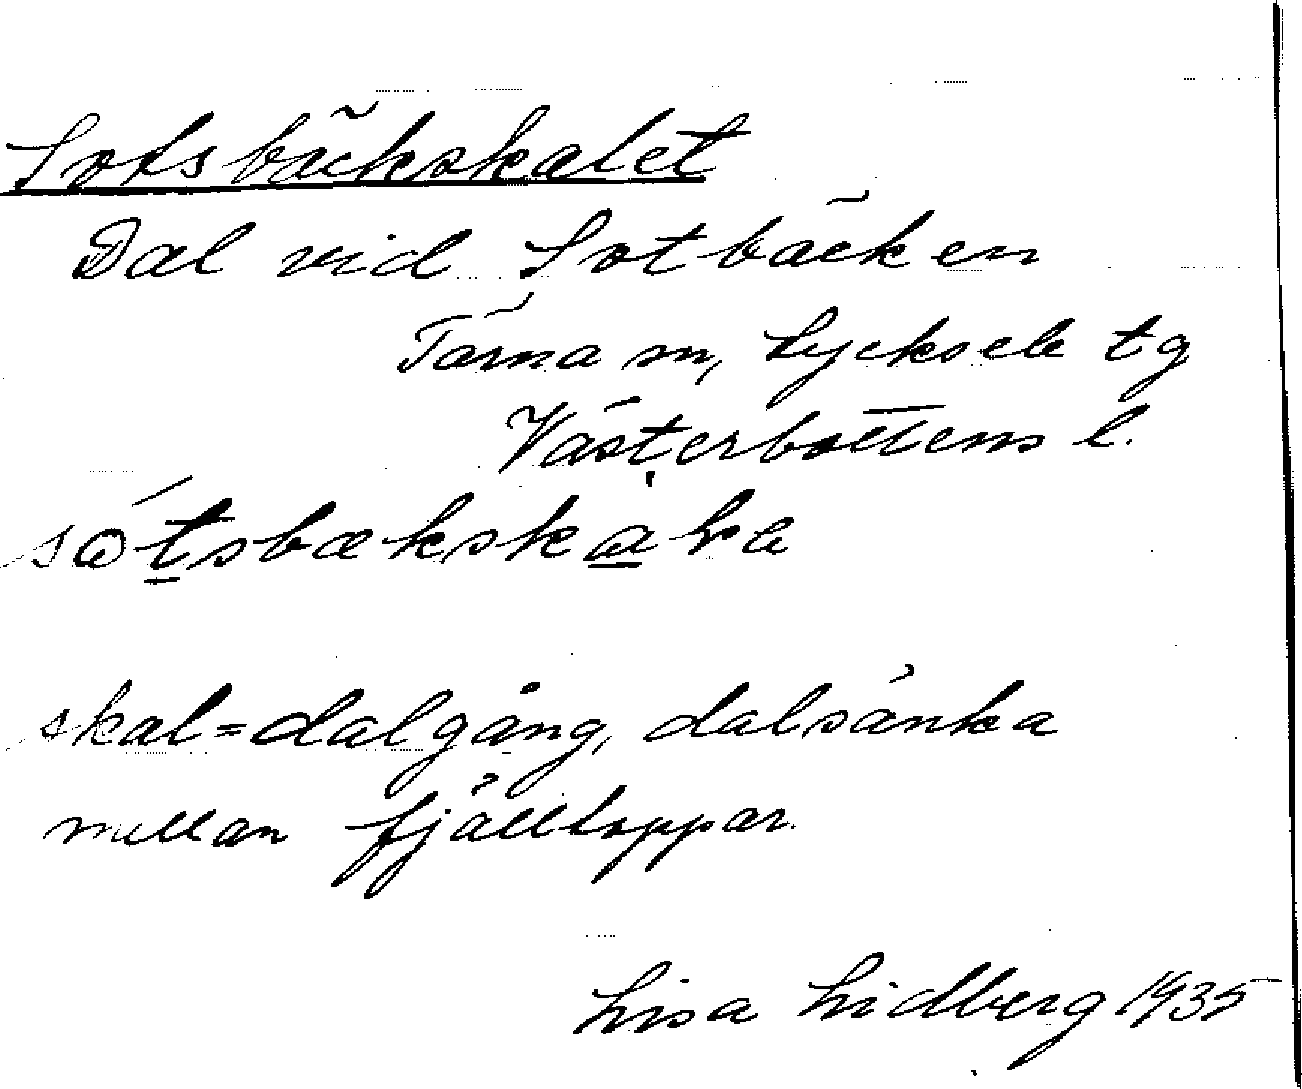 Sotsbäckskalet
Dal vid Sotbäcken
Tärna sn, Lycksele tg
Västerbottens l.
skal=dalgång, dalsänka
mellan fjälltoppar.
Lisa Lidberg 1935